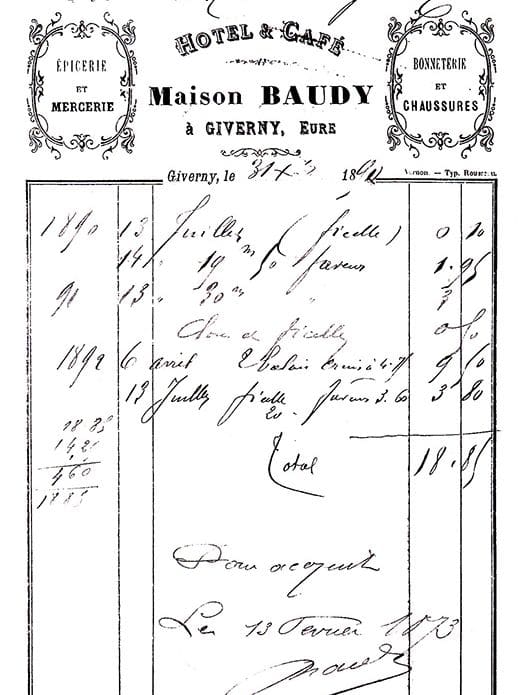 HOTEL & CAFÉ
ÉPICERIE
ET
MERCERIE
Maison BAUDY
à GIVERNY, EURE
BONNETERIE
ET
CHAUSSURES
Giverny, le 31 Xbre 189
Vernon. — Typ. Rousseau.
1890 13 Juillet (ficelle) 0 10
14 " 19 m 50 faveur 1.95
91 13 " 30 m " 3
de ficelle 0 50
1892 6 avril 2 balais à 4.75 9 50
13 Juillet ficelle 20 faveurs 3.60 3 80
18 85
14 25
4 60
18 85
Total 18.85
Pour acquit
Le 13 Fevrier
Baudy